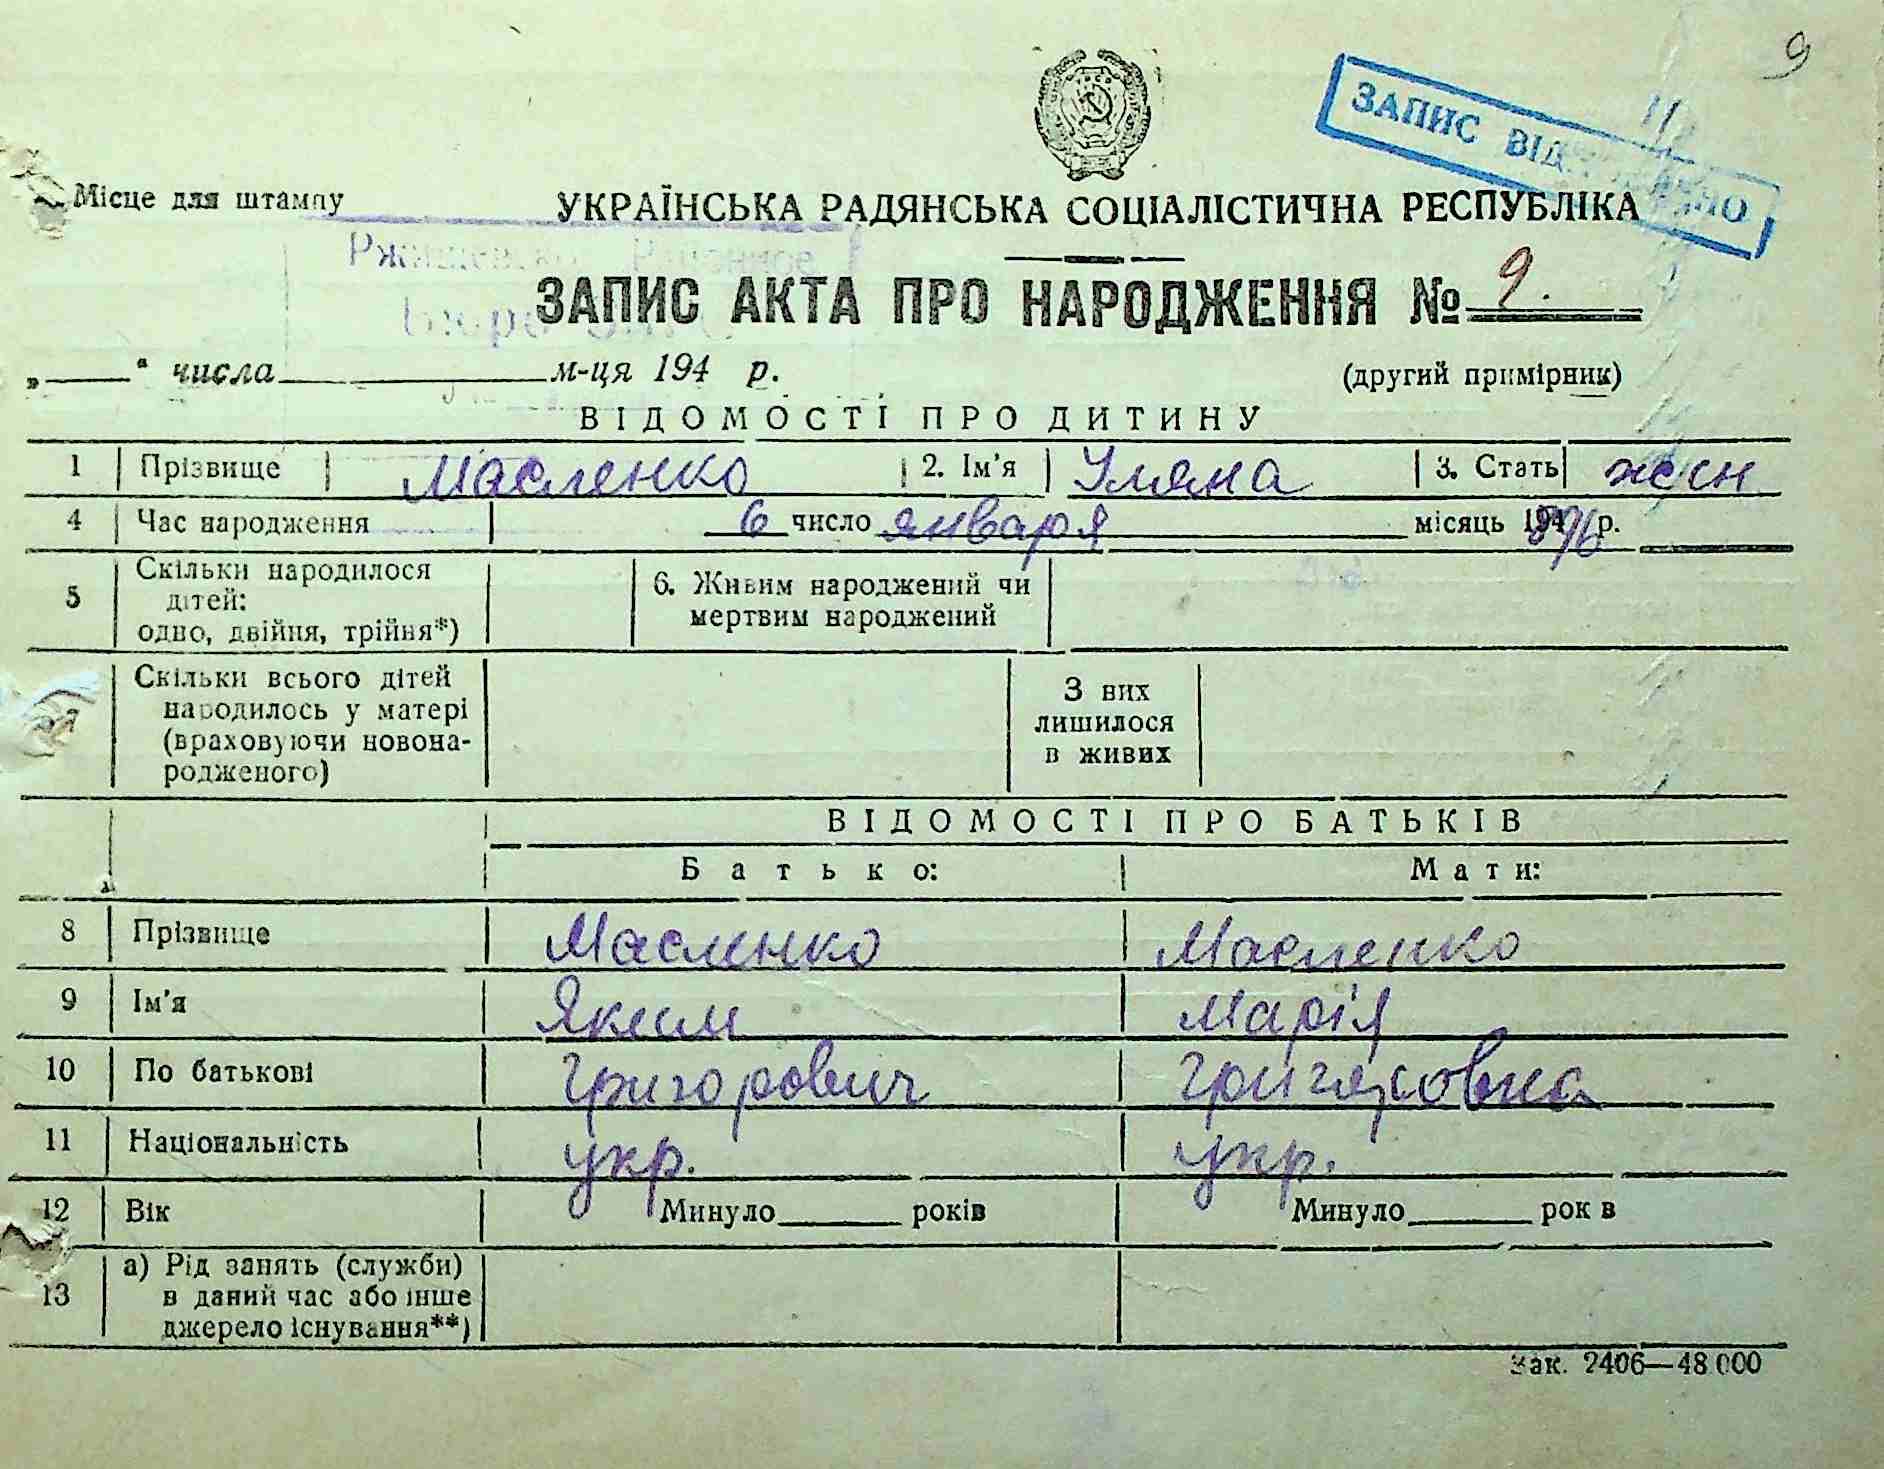 9
ЗАПИС ВІД
Місце для штампу
УКРАЇНСЬКА РАДЯНСЬКА СОЦІАЛІСТИЧНА РЕСПУБЛІКА
ЗАПИС АКТА ПРО НАРОДЖЕННЯ № 9.
„ “ числа м-ця 194 р.
(другий примірник)
ВІДОМОСТІ ПРО ДИТИНУ
1 Прізвище Масленко 2. Ім’я Уляна 3. Стать жен
4 Час народження 6 число января місяць 1896 р.
5 Скільки народилося дітей: одно, двійня, трійня*)
6. Живим народжений чи мертвим народжений
7 Скільки всього дітей народилось у матері (враховуючи новонародженого)
З них лишилося в живих
ВІДОМОСТІ ПРО БАТЬКІВ
Батько: Мати:
8 Прізвище Масленко Масленко
9 Ім’я Яким Марія
10 По батькові Григорович Григоровна
11 Національність укр. укр.
12 Вік Минуло років Минуло рок в
13 а) Рід занять (служби) в даний час або інше джерело існування**)
Зак. 2406—48 000